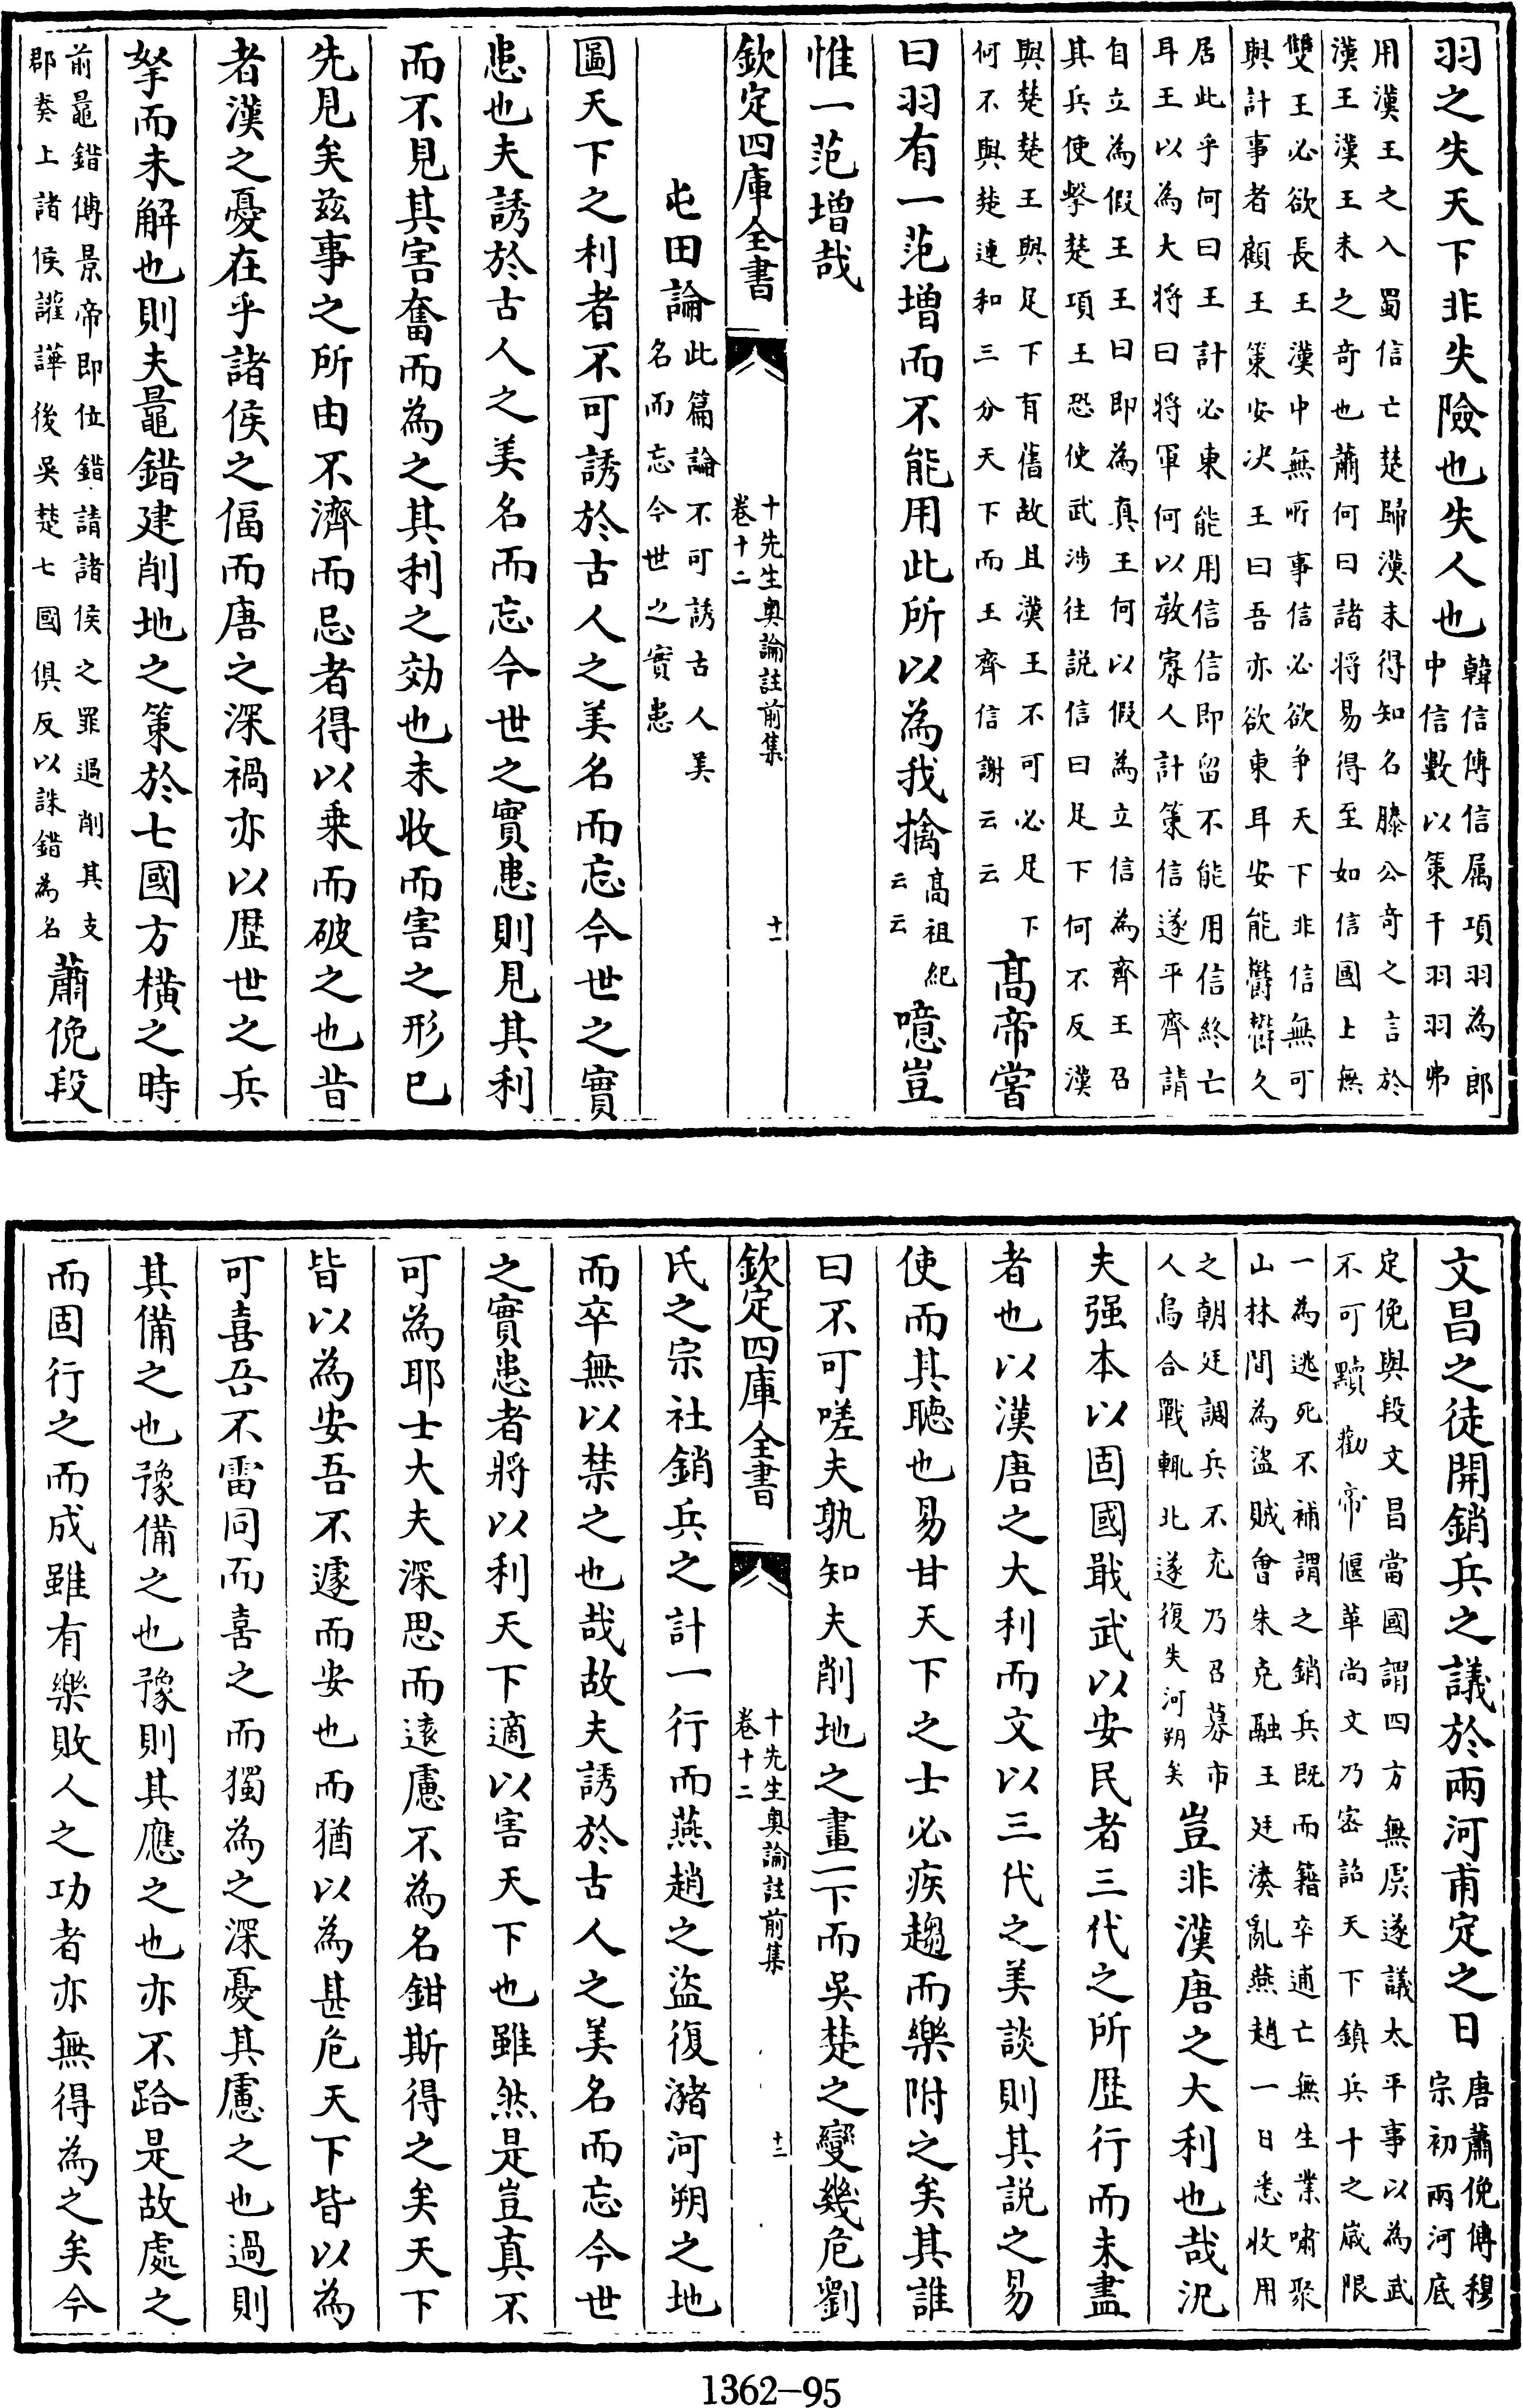 羽之失天下非失險也失人也韓信傳信属項羽為郎
中信數以策干羽羽弗
用漢王之入蜀信亡楚歸漢未得知名滕公奇之言於
漢王漢王未之奇也蕭何曰諸将易得至如信國上無
雙王必欲長王漢中無所事信必欲争天下非信無可
與計事者顧王策安决王曰吾亦欲東耳安能鬱鬱久
居此乎何曰王計必東能用信信即留不能用信終亡
耳王以為大将曰将軍何以教寡人計策信遂平齊請
自立為假王王曰即為真王何以假為立信為齊王召
其兵使擊楚項王恐使武涉往説信曰足下何不反漢
與楚楚王與足下有舊故且漢王不可必足下
何不與楚連和三分天下而王齊信謝云云高帝嘗
曰羽有一范增而不能用此所以為我擒高祖紀
云云噫豈
惟一范增哉
欽定四庫全書
十先生奥論註前集
卷十二
十一
屯田論此篇論不可誘古人美
名而忘今世之實患
圖天下之利者不可誘於古人之美名而忘今世之實
患也夫誘於古人之美名而忘今世之實患則見其利
而不見其害奮而為之其利之効也未收而害之形已
先見矣兹事之所由不濟而忌者得以乗而破之也昔
者漢之憂在乎諸侯之偪而唐之深禍亦以歴世之兵
拏而未解也則夫鼂錯建削地之策於七國方橫之時
前鼂錯傅景帝即位錯請諸侯之罪過削其支
郡奏上諸侯讙譁後吳楚七國俱反以誅錯為名蕭俛段
文昌之徒開銷兵之議於兩河甫定之日唐蕭俛傅穆
宗初兩河底
定俛與段文昌當國謂四方無虞遂議太平事以為武
不可黷勸帝偃革尚文乃密詔天下鎮兵十之嵗限
一為逃死不補謂之銷兵既而籍卒逋亡無生業嘯聚
山林間為盜賊會朱克融王廷湊亂燕趙一日悉收用
之朝廷調兵不充乃召募市
人烏合戰輒北遂復失河朔矣豈非漢唐之大利也哉況
夫强本以固國戢武以安民者三代之所歴行而未盡
者也以漢唐之大利而文以三代之美談則其説之易
使而其聽也易甘天下之士必疾趨而樂附之矣其誰
曰不可嗟夫孰知夫削地之畫一下而吳楚之變幾危劉
欽定四庫全書
十先生奥論註前集
卷十二
十二
氏之宗社銷兵之計一行而燕趙之盜復瀦河朔之地
而卒無以禁之也哉故夫誘於古人之美名而忘今世
之實患者將以利天下適以害天下也雖然是豈真不
可為耶士大夫深思而逺慮不為名鉗斯得之矣天下
皆以為安吾不遽而安也而猶以為甚危天下皆以為
可喜吾不雷同而喜之而獨為之深憂其慮之也過則
其備之也豫備之也豫則其應之也亦不跲是故處之
而固行之而成雖有樂敗人之功者亦無得為之矣今
1362-95